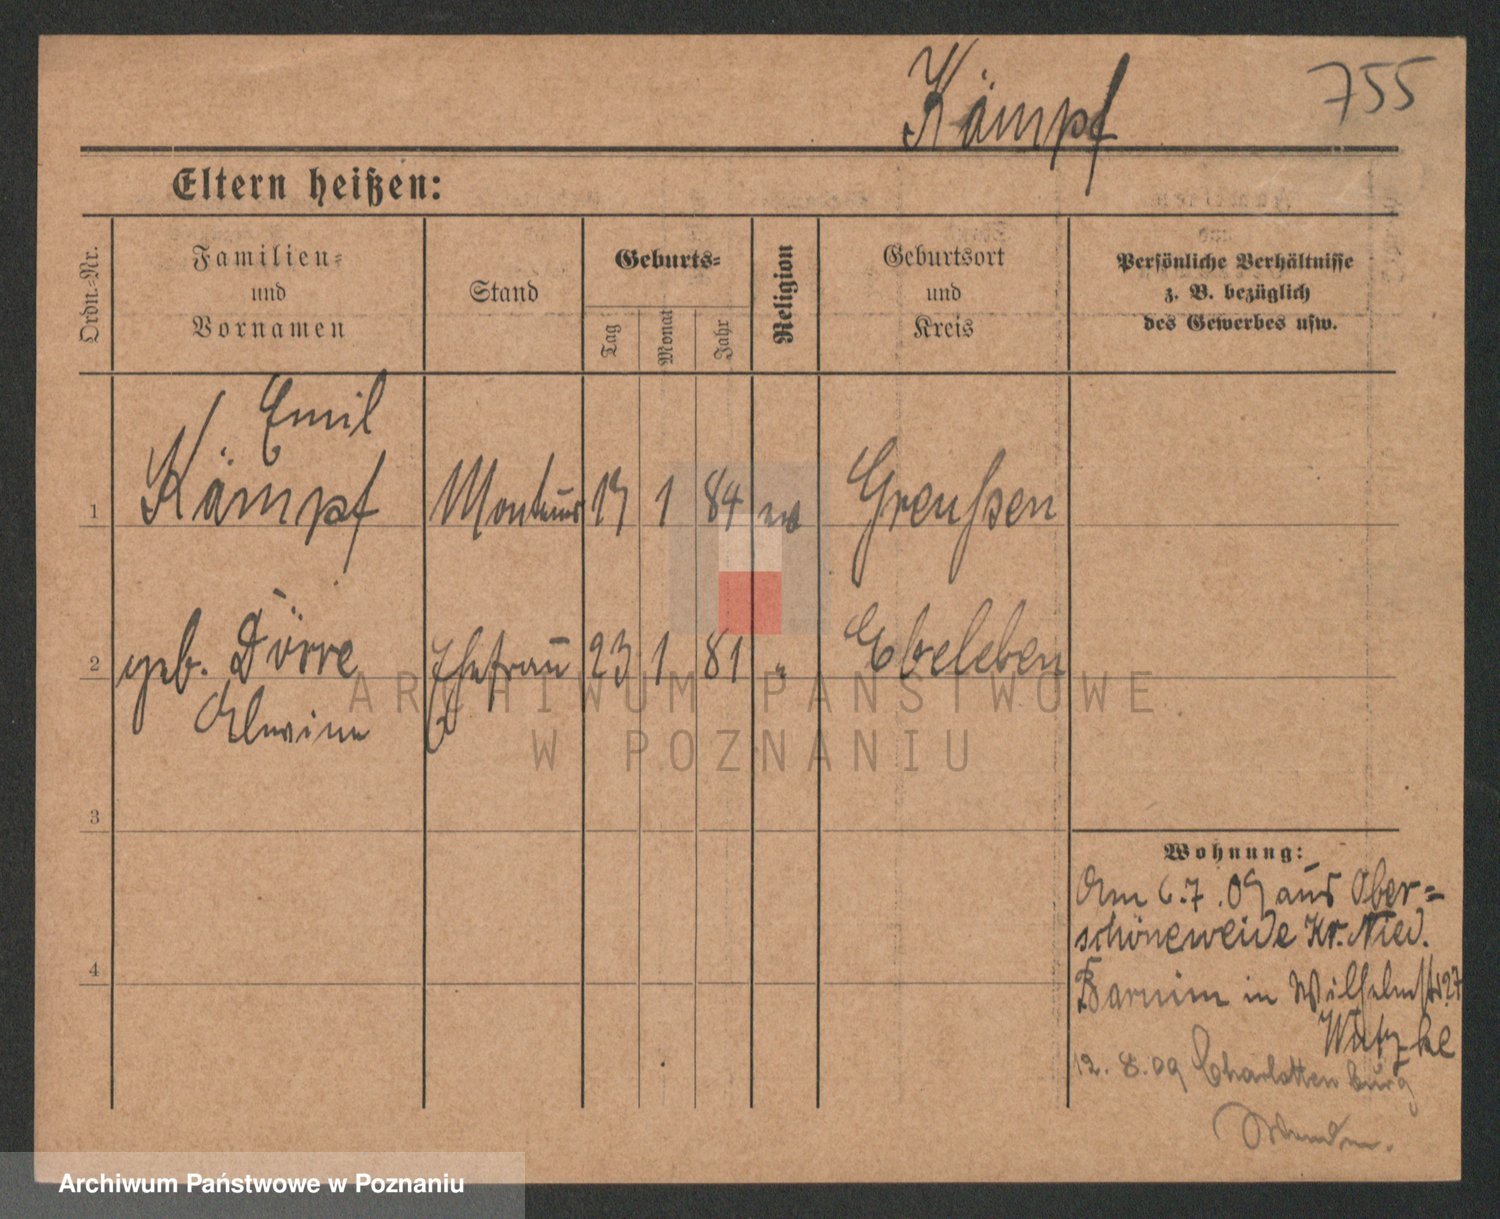 Kämpf
755
Eltern heißen:
Ordn.-Nr.
Familien-
und
Vornamen
Stand
Geburts-
Tag
Monat
Jahr
Religion
Geburtsort
und
Kreis
Persönliche Verhältnisse
z. B. bezüglich
des Gewerbes usw.
Emil
1 Kämpf Monteur 17 1 84 ev Greußen
2 geb. Dörre Ehefrau 23 1 81 " Ebeleben
Elwine
3
Wohnung:
Am 6.7.09 aus Ober-
schöneweide Kr. Nied.
4
Barnim in Wilhelmstr 27
Watzke
12. 8. 09 Charlottenburg
ARCHIWUM PAŃSTWOWE
W POZNANIU
Archiwum Państwowe w Poznaniu